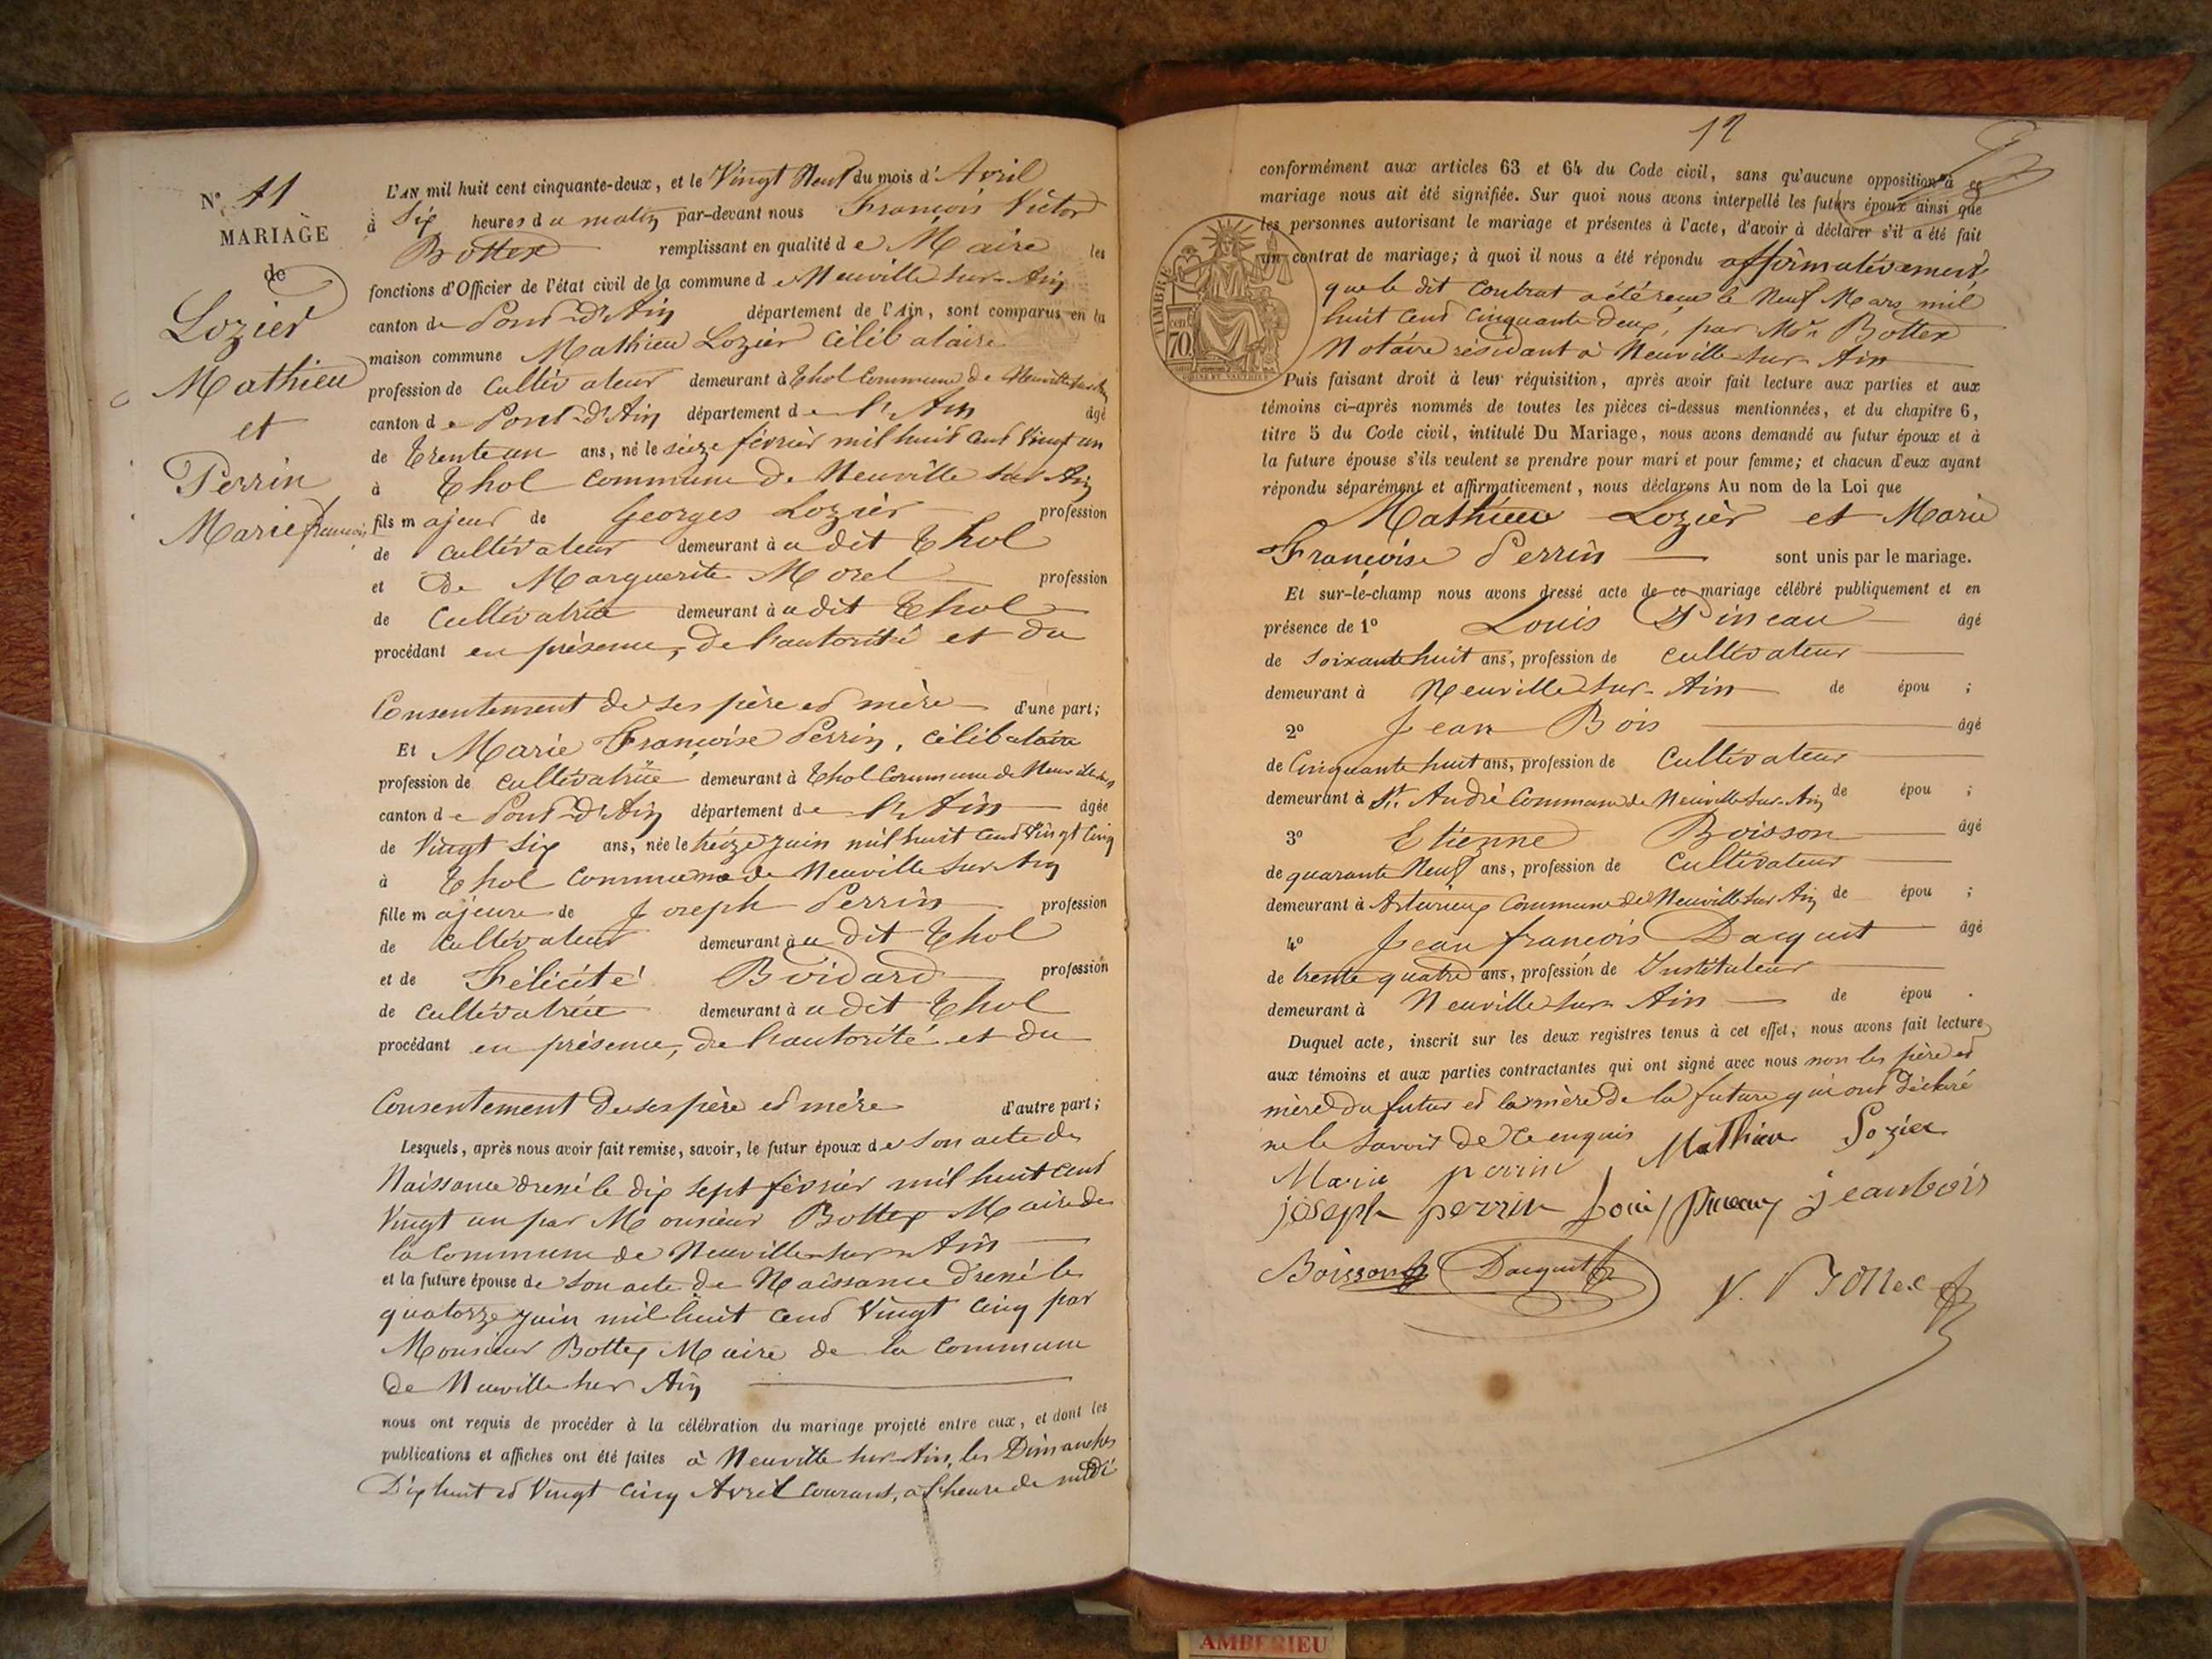 N° 11
MARIAGE
de
Lozier
Mathieu
et
Perrin
Marie françoise
L'AN mil huit cent cinquante-deux, et le Vingt Neuf du mois d'Avril
à Six heures du matin par-devant nous François Victor
Bottex remplissant en qualité de Maire les
fonctions d'Officier de l'état civil de la commune de Neuville sur-Ain
canton de Pont-d'Ain département de l'Ain, sont comparus en la
maison commune Mathieu Lozier Célibataire
profession de Cultivateur demeurant à Thol Commune de Neuville sur Ain
canton de Pont-d'Ain département de l'Ain âgé
de trente un ans, né le seize février mil huit cent vingt un
à Thol Commune de Neuville sur Ain
fils majeur de Georges Lozier profession
de Cultivateur demeurant à u dit Thol
et de Marguerite Morel profession
de Cultivatrice demeurant à u dit Thol
procédant en présence, de l'autorité et du
Consentement de ses père et mère d'une part;
Et Marie Françoise Perrin, célibataire
profession de cultivatrice demeurant à Thol Commune de Neuville sur
canton de Pont-d'Ain département de l'Ain âgée
de Vingt Six ans, née le treize juin mil huit cent Vingt Cinq
à Thol Commune de Neuville sur Ain
fille majeure de Joseph Perrin profession
de Cultivateur demeurant à u dit Thol
et de Félicité Boidard profession
de Cultivatrice demeurant à u dit Thol
procédant en présence, de l'autorité et du
Consentement de ses père et mère d'autre part;
Lesquels, après nous avoir fait remise, savoir, le futur époux de son acte de
Naissance dressé le dix sept février mil huit cent
Vingt un par Monsieur Bottex Maire de
la Commune de Neuville-sur-Ain
et la future épouse de son acte de Naissance dressé le
quatorze juin mil huit cent Vingt Cinq par
Monsieur Bottex Maire de la Commune
de Neuville sur Ain
nous ont requis de procéder à la célébration du mariage projeté entre eux, et dont les
publications et affiches ont été faites à Neuville sur Ain, les Dimanches
Dix huit et Vingt Cinq Avril Courant, à l'heure de midi
12
conformément aux articles 63 et 64 du Code civil, sans qu'aucune opposition à ce
mariage nous ait été signifiée. Sur quoi nous avons interpellé les futurs époux ainsi que
les personnes autorisant le mariage et présentes à l'acte, d'avoir à déclarer s'il a été fait
un contrat de mariage; à quoi il nous a été répondu affirmativement,
que le dit Contrat a été reçu le Neuf Mars mil
huit Cent Cinquante Deux, par Mr. Bottex
Notaire résidant à Neuville-sur-Ain
TIMBRE
70
Puis faisant droit à leur réquisition, après avoir fait lecture aux parties et aux
témoins ci-après nommés de toutes les pièces ci-dessus mentionnées, et du chapitre 6,
titre 5 du Code civil, intitulé Du Mariage, nous avons demandé au futur époux et à
la future épouse s'ils veulent se prendre pour mari et pour femme; et chacun d'eux ayant
répondu séparément et affirmativement, nous déclarons Au nom de la Loi que
Mathieu Lozier et Marie
Françoise Perrin sont unis par le mariage.
Et sur-le-champ nous avons dressé acte de ce mariage célébré publiquement et en
présence de 1° Louis Pineau âgé
de soixante huit ans, profession de cultivateur
demeurant à Neuville sur-Ain de épou ;
2° Jean Bois âgé
de Cinquante huit ans, profession de Cultivateur
demeurant à St. André Commune de Neuville sur-Ain de épou ;
3° Etienne Boisson âgé
de quarante Neuf ans, profession de Cultivateur
demeurant à Arturieux Commune de Neuville sur Ain de épou ;
4° Jean françois Dacquit âgé
de trente quatre ans, profession de Instituteur
demeurant à Neuville sur-Ain de épou .
Duquel acte, inscrit sur les deux registres tenus à cet effet, nous avons fait lecture
aux témoins et aux parties contractantes qui ont signé avec nous non les père et
mère du futur et la mère de la future qui ont déclaré
ne le savoir de ce enquis Mathieu Lozier
Marie perrin
joseph perrin Louis Pineau jean bois
Boisson Dacquit V. Bottex
AMBERIEU